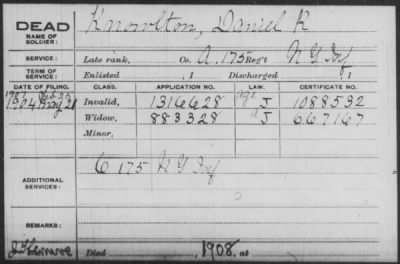 DEAD
NAME OF SOLDIER: Knowlton, Daniel R
SERVICE: Late rank, Co. A, 175 Reg't N Y Inf
TERM OF SERVICE: Enlisted , 1 Discharged , 1
DATE OF FILING. CLASS. APPLICATION NO. LAW. CERTIFICATE NO.
1904 May 21 Invalid, 1316628 J 1088532
Widow, 883328 J 667167
Minor,
ADDITIONAL SERVICES: C 175 N Y Inf
REMARKS:
Died , 1908, at